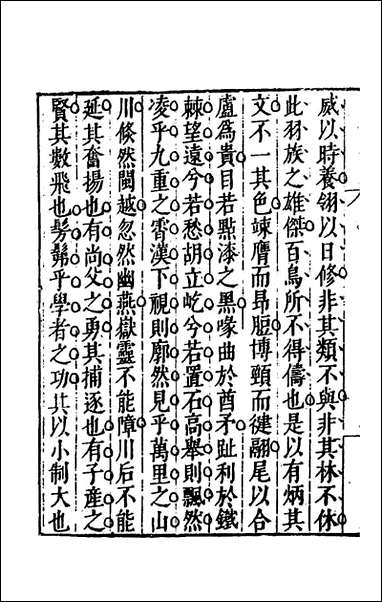 威以時養翎以日修非其類不與非其林不休
此羽族之雄傑百鳥所不得儔也是以有炳其
文不一其色竦膺而昂脰博頸而揵翮尾以合
盧為貴目若點漆之黑喙曲於酋矛趾利於鐵
棘望遠兮若愁胡立屹兮若置石高舉則飄然
凌乎九重之霄漢下視則廓然見乎萬里之山
川倐然閩越忽然幽燕嶽靈不能障川后不能
延其奮揚也有尚父之勇其捕逐也有子產之
賢其數飛也髣髴乎學者之功其以小制大也